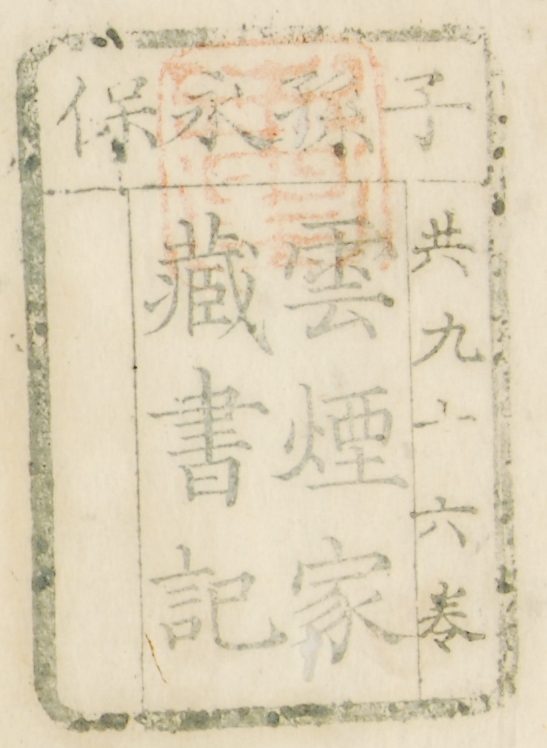 子孫永保
共九十六卷
雲煙家
藏書記